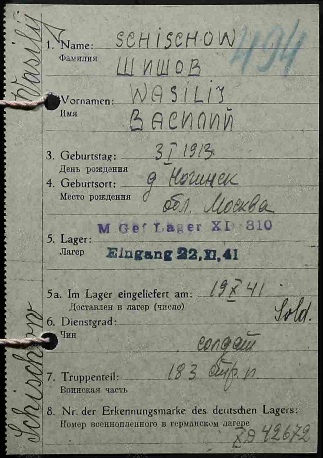 Wasilij
494
1. Name: SCHISCHOW
Фамилия ШИШОВ
2. Vornamen: WASILIJ
Имя ВАСИЛИЙ
3. Geburtstag: 3 I 1913
День рождения
4. Geburtsort: д Ногинск
Место рождения обл. Москва
5. Lager: M Gef Lager XI 310
Лагер Eingang 22.XI.41
5a. Im Lager eingeliefert am: 19 X 41
Доставлен в лагер (число)
6. Dienstgrad: Sold.
Чин солдат
7. Truppenteil: 183
Воинская часть
8. Nr. der Erkennungsmarke des deutschen Lagers:
Номер военнопленного в германском лагере
XD 42672
Schischow